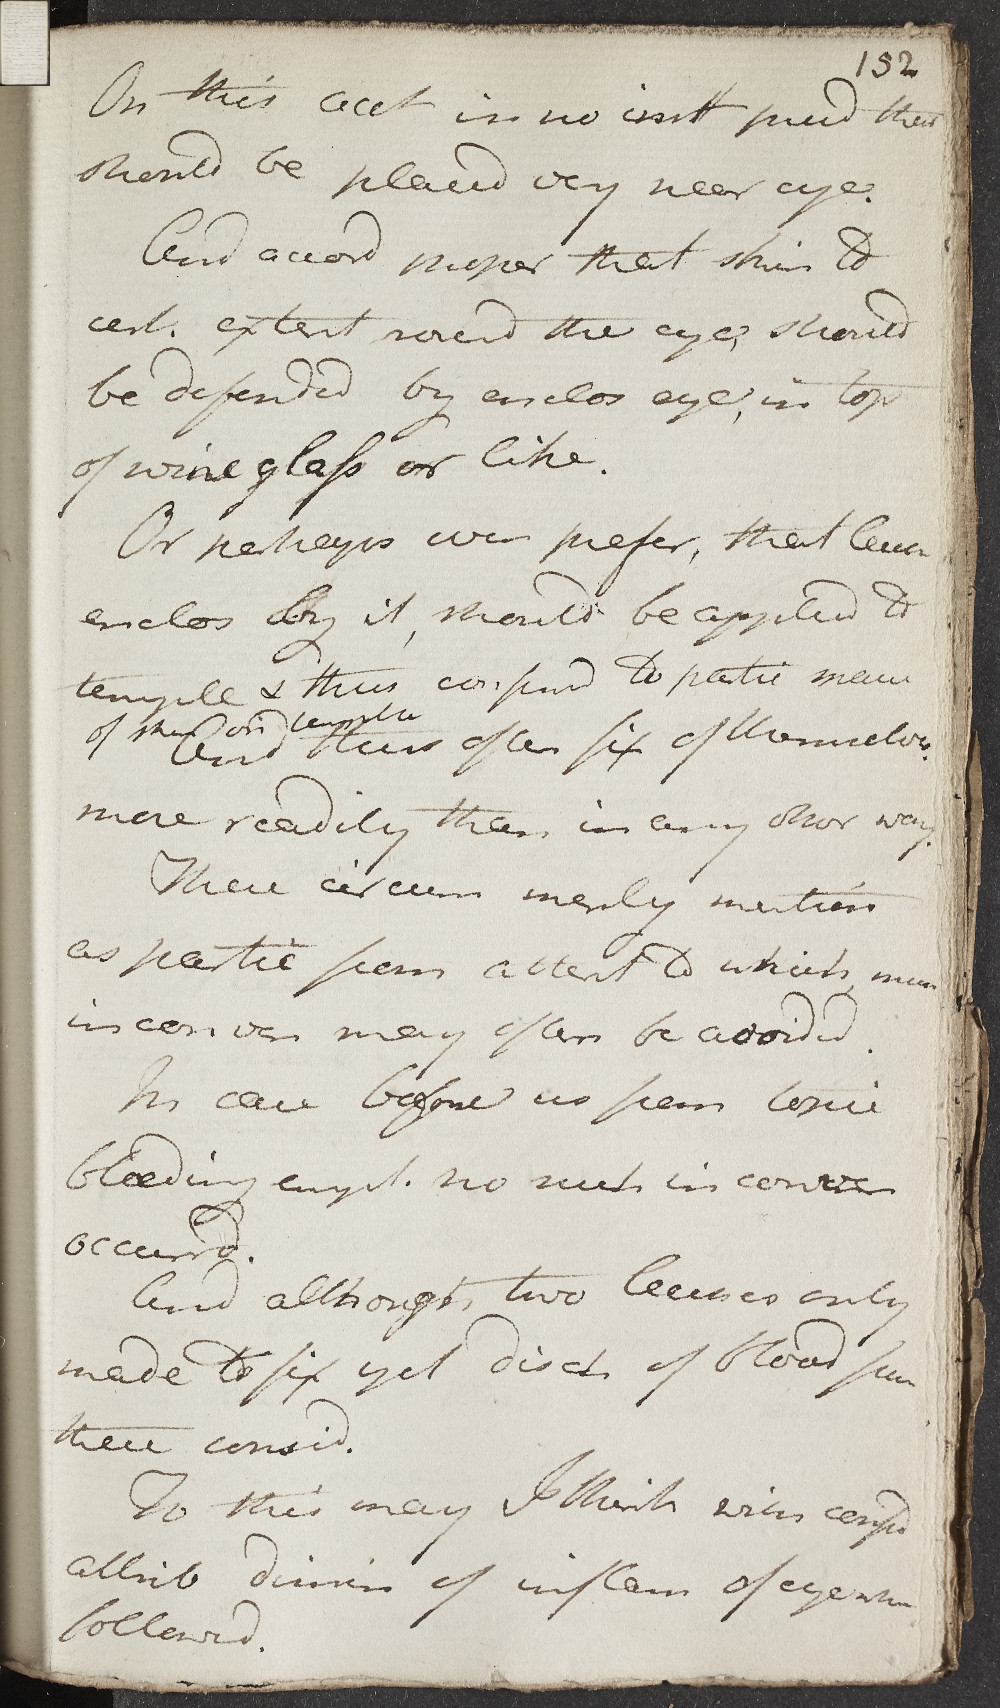 152
On this acct in no inst prud that
should be placed very near eye.
And accord proper that skin to
cert. extent round the eye, should
be defended by enclos eye, in top
of wine glass or like.
Or perhaps even prefer, that leech
enclos by it, should be applied to
temple & thus confind to partic
of skin on temple
And thus often fix of themselves
more readily than in any other way.
These circum merely mention
as partic from attent to which, much
inconven may often be avoided.
In case before us from topic
bleeding empl. no such inconven
occurr'd.
And although two leeches only
made to fix yet disch of blood from
these consid.
To this may I think with confid
attrib dimin of inflam of eye wh
followed.